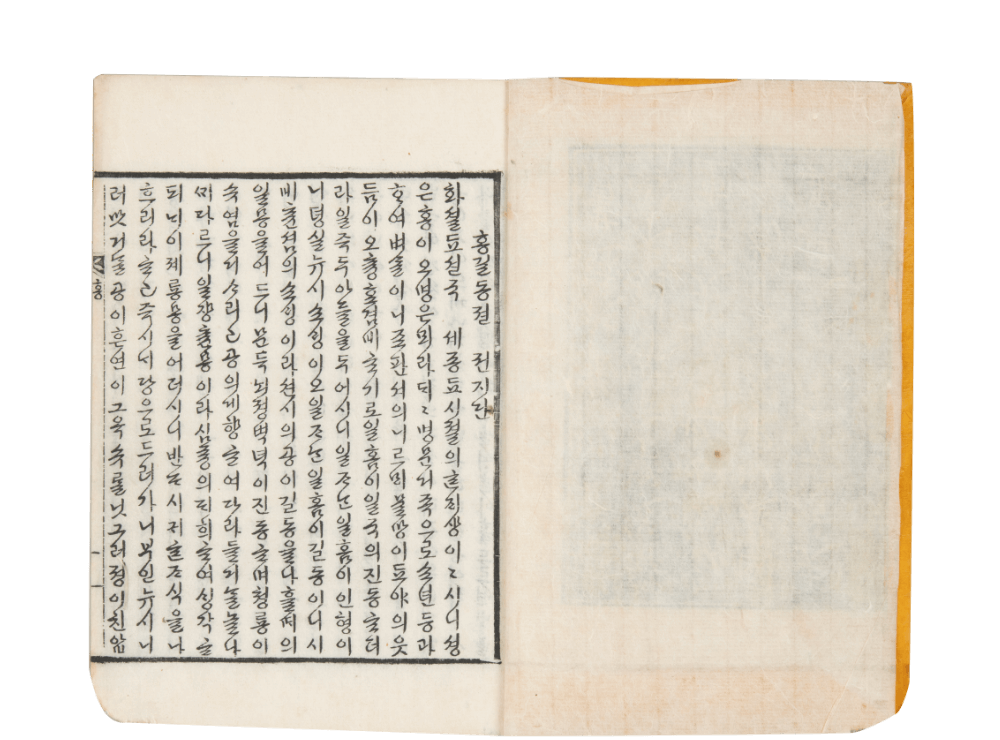 홍길동젼 권지단
화셜됴션국 셰종됴시졀의ᄒᆞᆫᄌᆡ샹이〻시니셩
은홍이오명은뫼라ᄃᆡ〻명문거족으로쇼년등과
ᄒᆞ여벼ᄉᆞᆯ이니조판셔의니르ᄆᆡ물망이됴야의웃
듬이오츙효겸비ᄒᆞ기로일홈이일국의진동ᄒᆞ더
라일즉두아들을두어시니일ᄌᆞᄂᆞᆫ일홈이인형이
니뎡실뉴시쇼ᄉᆡᆼ이오일ᄌᆞᄂᆞᆫ일홈이길동이니시
비츈셤의쇼ᄉᆡᆼ이라션시의공이길동을나흘ᄯᆡ의
일몽을어드니문득뇌졍벽녁이진동ᄒᆞ며쳥룡이
슈염을거사리고공의게향ᄒᆞ여다라들거ᄂᆞᆯ놀나
ᄭᆡ다르니일쟝츈몽이라심즁의ᄃᆡ희ᄒᆞ여ᄉᆡᆼ각ᄒᆞ
되ᄂᆡ이졔룡몽을어더시니반ᄃᆞ시귀ᄒᆞᆫᄌᆞ식을나
흐리라ᄒᆞ고즉시ᄂᆡ당으로드러가니부인뉴시니
러맛거ᄂᆞᆯ공이흔연이그옥슈를닛그러졍이친압
홍